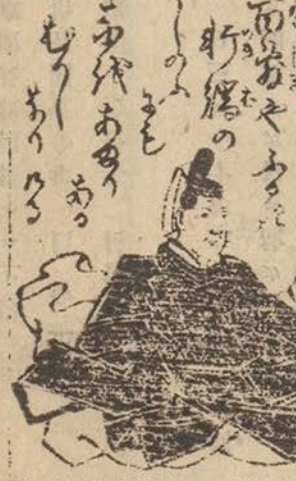 百敷や ふるき
軒端の
しのふ
にも
なを あまり
ある
むかし
なりけり